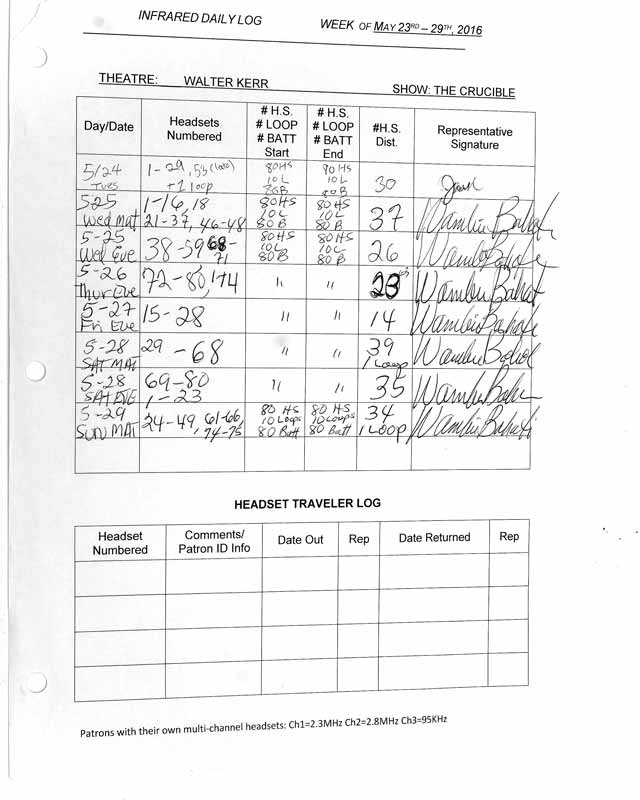 INFRARED DAILY LOG WEEK OF MAY 23RD – 29TH, 2016
THEATRE: WALTER KERR SHOW: THE CRUCIBLE
Day/Date Headsets Numbered # H.S. # LOOP # BATT Start # H.S. # LOOP # BATT End #H.S. Dist. Representative Signature
5/24 Tues 1-29, 53 +1 loop 80HS 10L 80B 80HS 10L 80B 30
5-25 Wed Mat 1-16, 18 21-37, 46-48 80HS 10L 80B 80HS 10L 80B 37
5-25 Wed Eve 38-59 68-71 80HS 10L 80B 80HS 10L 80B 26
5-26 Thur Eve 72-80, 1-14 " " 23
5-27 Fri Eve 15-28 " " 14
5-28 SAT MAT 29-68 " " 39 1 Loop
5-28 SAT EVE 69-80 1-23 " " 35
5-29 SUN MAT 24-49, 61-66, 74-75 80 HS 10 Loops 80 Batt 80 HS 10 Loops 80 Batt 34 1 LOOP
HEADSET TRAVELER LOG
Headset Numbered Comments/ Patron ID Info Date Out Rep Date Returned Rep
Patrons with their own multi-channel headsets: Ch1=2.3MHz Ch2=2.8MHz Ch3=95KHz